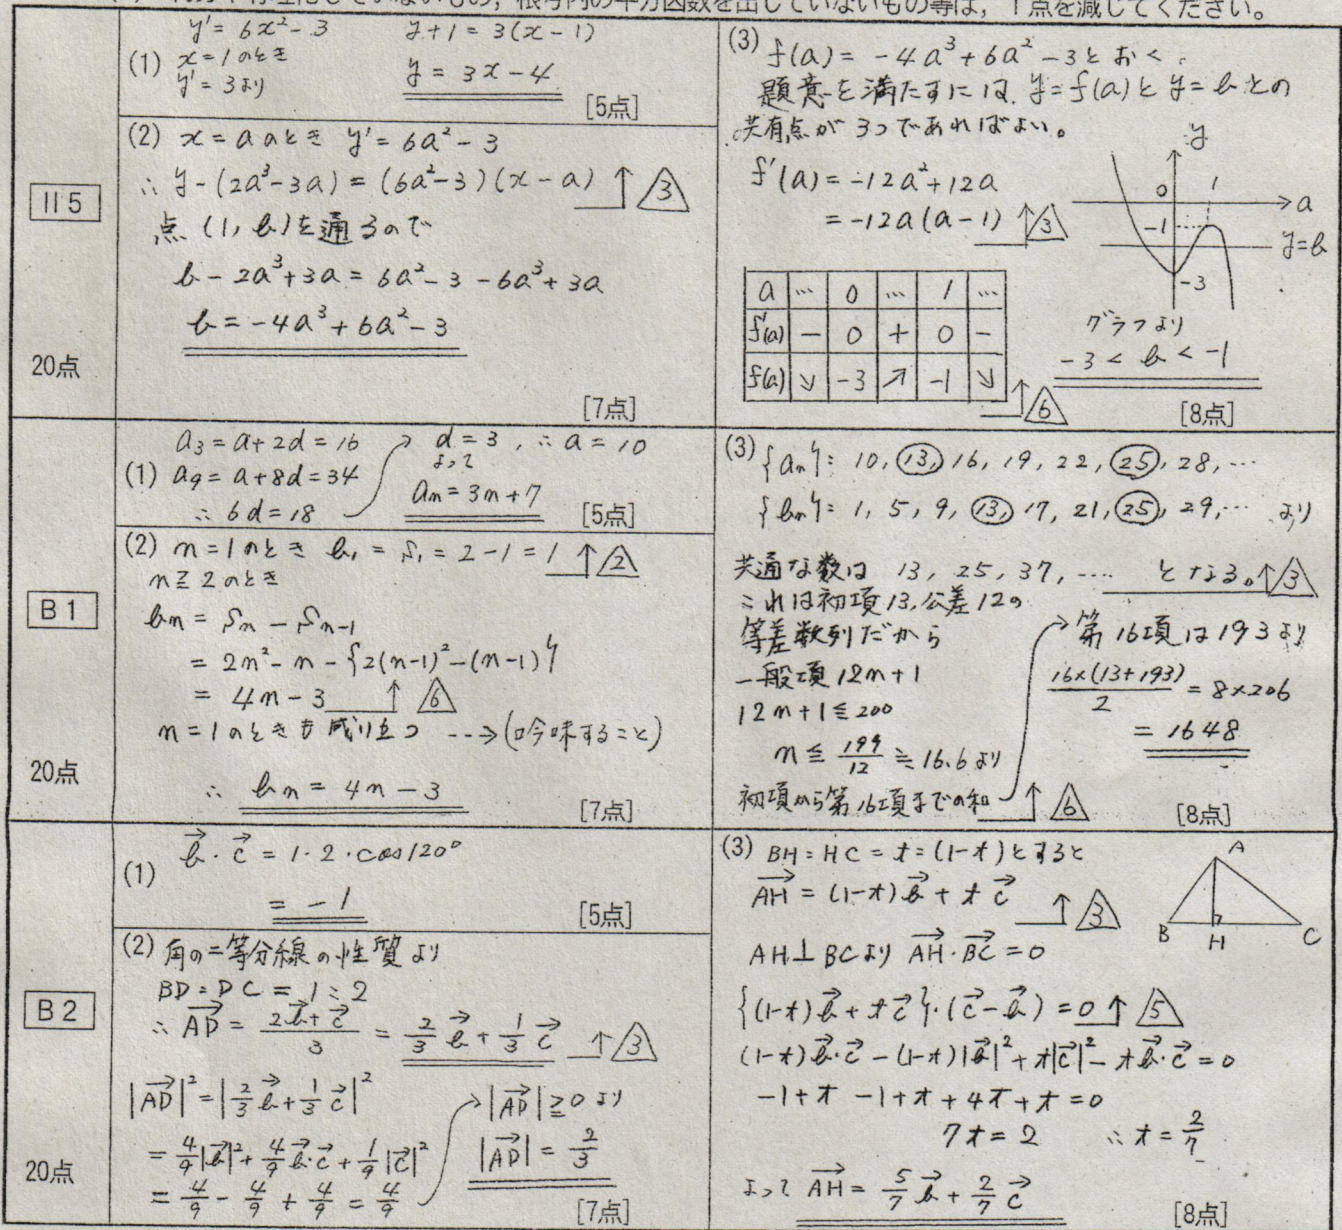 平方因数を出していないもの等は，1点を減じてください。
II 5
20点
(1) y' = 6x² - 3
x = 1 のとき
y' = 3 より
y + 1 = 3(x - 1)
y = 3x - 4
[5点]
(2) x = a のとき y' = 6a² - 3
∴ y - (2a³ - 3a) = (6a² - 3)(x - a) ↑ 3
点 (1, b) を通るので
b - 2a³ + 3a = 6a² - 3 - 6a³ + 3a
b = -4a³ + 6a² - 3
[7点]
(3) f(a) = -4a³ + 6a² - 3 とおく。
題意を満たすには、y = f(a) と y = b との
共有点が 3つであればよい。
f'(a) = -12a² + 12a
= -12a(a - 1) ↑ 3
y
0 1 a
-1
y = b
-3
a … 0 … 1 …
f'(a) - 0 + 0 -
f(a) ↘ -3 ↗ -1 ↘
↑ 6
グラフより
-3 < b < -1
[8点]
B 1
20点
(1) a₃ = a + 2d = 16
a₉ = a + 8d = 34
∴ 6d = 18
d = 3, ∴ a = 10
よって
aₙ = 3n + 7
[5点]
(2) n = 1 のとき b₁ = S₁ = 2 - 1 = 1 ↑ 2
n ≧ 2 のとき
bₙ = Sₙ - Sₙ₋₁
= 2n² - n - {2(n-1)² - (n-1)}
= 4n - 3 ↑ 6
n = 1 のときも成り立つ --→ (吟味すること)
∴ bₙ = 4n - 3
[7点]
(3) {aₙ}: 10, 13, 16, 19, 22, 25, 28, …
{bₙ}: 1, 5, 9, 13, 17, 21, 25, 29, … より
共通な数は 13, 25, 37, …. となる。↑ 3
これは初項13, 公差12の
等差数列だから
一般項 12n + 1
12n + 1 ≦ 200
n ≦ 199/12 ≒ 16.6 より
初項から第16項までの和 ↑ 6
第16項は193より
16×(13+193)/2 = 8×206
= 1648
[8点]
B 2
20点
(1) b⃗・c⃗ = 1・2・cos120°
= -1
[5点]
(2) 角の二等分線の性質より
BD : DC = 1 : 2
∴ AD⃗ = (2b⃗ + c⃗)/3 = 2/3 b⃗ + 1/3 c⃗ ↑ 3
|AD⃗|² = |2/3 b⃗ + 1/3 c⃗|²
= 4/9|b⃗|² + 4/9 b⃗・c⃗ + 1/9|c⃗|²
= 4/9 - 4/9 + 4/9 = 4/9
|AD⃗| ≧ 0 より
|AD⃗| = 2/3
[7点]
(3) BH : HC = t : (1-t) とすると
AH⃗ = (1-t)b⃗ + t c⃗ ↑ 3
A
B H C
AH ⊥ BC より AH⃗・BC⃗ = 0
{(1-t)b⃗ + t c⃗}・(c⃗ - b⃗) = 0 ↑ 5
(1-t)b⃗・c⃗ - (1-t)|b⃗|² + t|c⃗|² - t b⃗・c⃗ = 0
-1 + t - 1 + t + 4t + t = 0
7t = 2 ∴ t = 2/7
よって AH⃗ = 5/7 b⃗ + 2/7 c⃗
[8点]